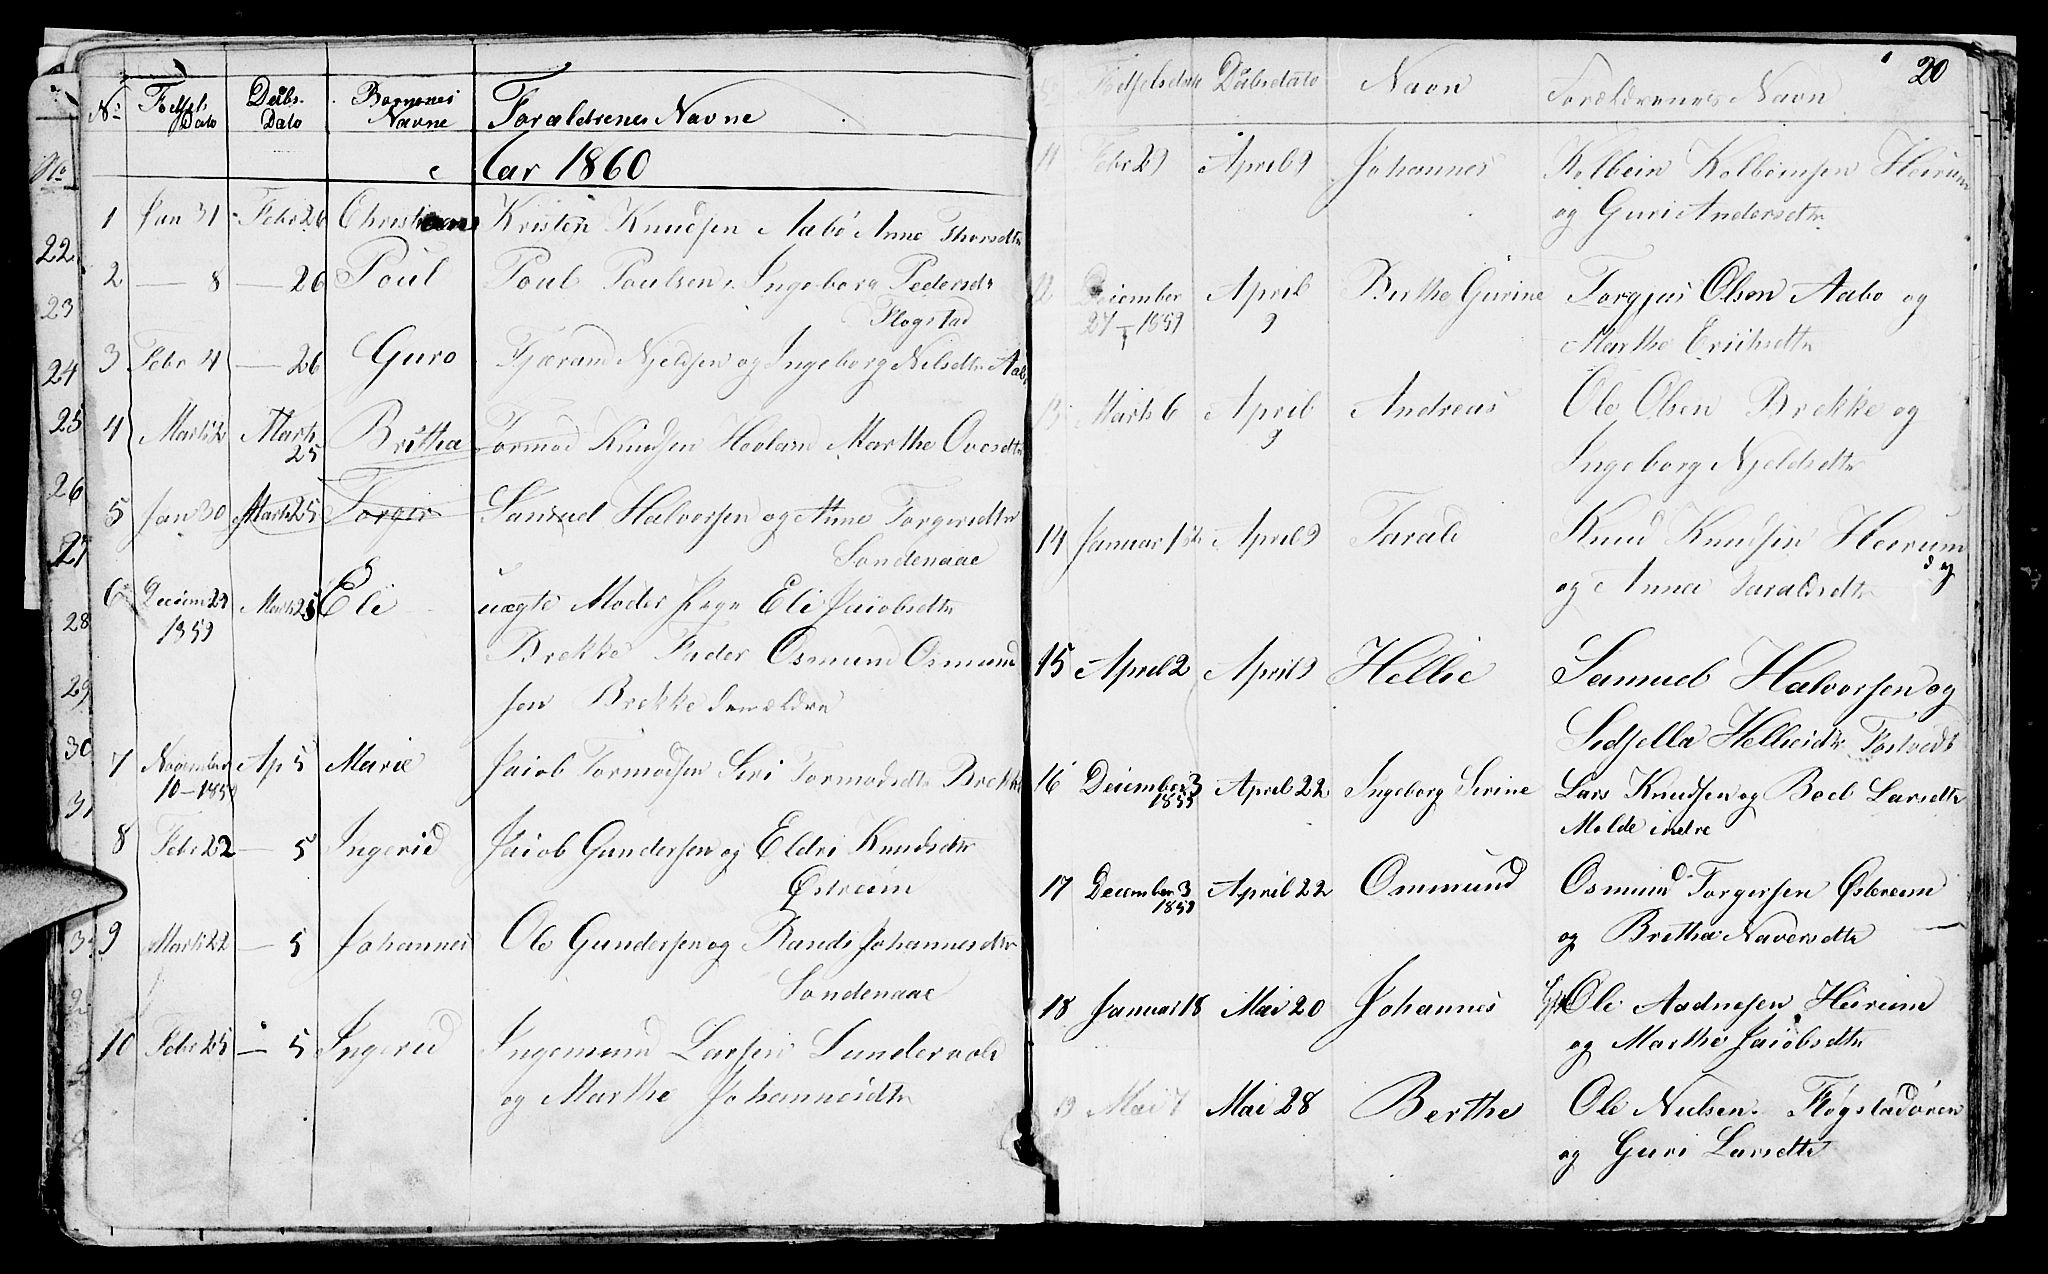 No Fødsels Dato Daabs Dato Børnenes Navne Forældrenes Navne
Aar 1860
1 Jan 31 Febr 26 Christian Kristen Knudsen Aabø Anne Thorsdtr
2 — 8 — 26 Poul Poul Poulsen Ingeborg Pedersdtr
Flogstad
3 Febr 4 — 26 Guro Tjæran Njeldsen og Ingeborg Nilsdtr Aabø
4 Marts 2 Marts 25 Britha Tormod Knudsen Hooland Marthe Ovesdtr
5 Jan 30 Marts 25 Torger Samuel Halvorsen og Anne Torgersdtr
Sondenaae
6 Decem 29 1859 Marts 25 Eli uægte Moder Pige Eli Jacobsdtr
Brekke Fader Osmund Osmund
sen Brekke
7 November 10 – 1859 Ap 5 Marie Jacob Tormodsen Siri Tormodsdtr Brekke
8 Febr 22 — 5 Ingerid Jacob Gundersen og Eldri Knudsdtr
Østreim
9 Marts 22 — 5 Johannes Ole Gundersen og Randi Johannesdtr
Sondenaae
10 Febr 25 — 5 Ingerid Ingemund Larsen Sundervold
og Marthe Johannesdtr
20
Fødselsdato Daabsdato Navn Forældrenes Navn
11 Febr 29 April 9 Johannes Kolbein Kolbeinsen Heirum
og Guri Andersdtr
12 December 27 – 1859 April 9 Berthe Gurine Torgjus Olsen Aabo og
Marthe Erichsdtr
13 Marts 6 April 9 Andreas Ole Olsen Brekke og
Ingeborg Njeldsdtr
14 Januar 1st April 9 Tarald Knud Knudsen Heirum
og Anna Taraldsdtr
15 April 2 April 9 Hellie Samuel Halvorsen og
Sidsella Helliesdtr Tostvedt
16 December 3 1859 April 22 Ingeborg Serine Lars Knudsen og Boel Larsdtr
Molde indre
17 December 3 1859 April 22 Ommund Osmund Torgersen Østereim
og Bretha Naversdtr
18 Januar 18 Mai 20 Johannes Ole Aadnesen Heirem
og Marthe Jacobsdtr
19 Mai 7 Mai 28 Berthe Ole Nielsen Fløgstadøren
og Guri Larsdtr
No
22
23
24
25
26
27
28
29
30
31